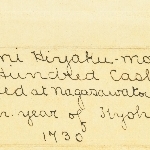 ni Hiyaku-mo
Hundred Cash
ed at Nagasawatow
n year of Kyoho
1730